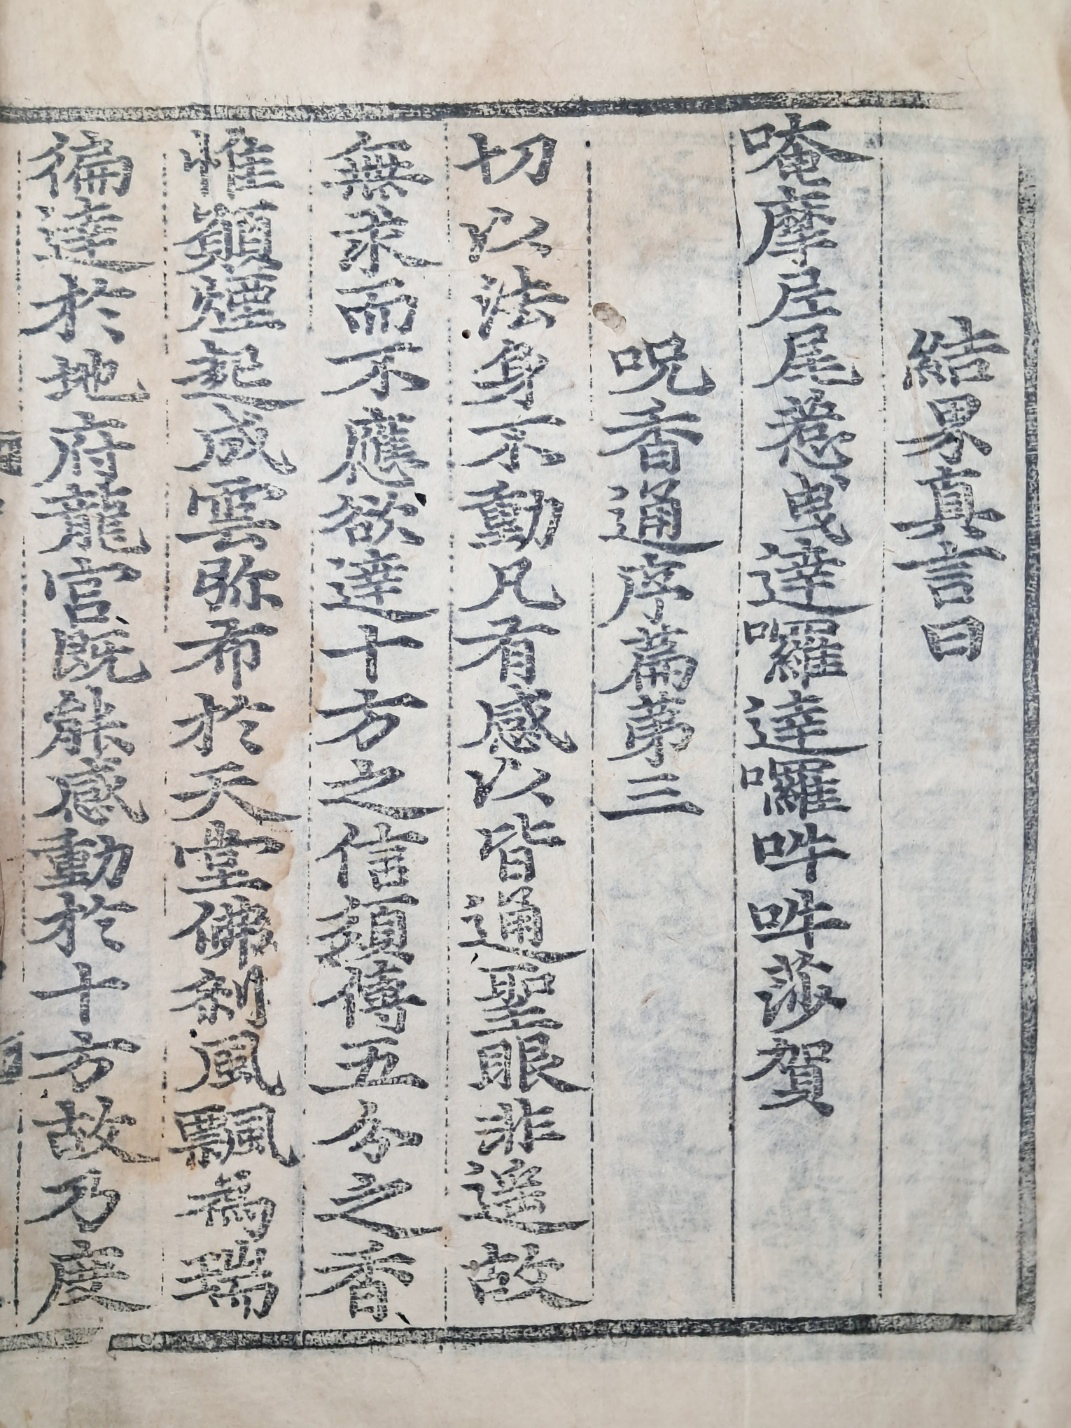 結界真言曰
唵摩尼尾惹曳達囉達囉吽吽莎賀
呪香通序篇第三
切以法身不動凡有感以皆通聖眼非遥故
無求而不應欲達十方之信頼博五分之香
惟願煙起成雲弥布於天堂佛刹風飄為瑞
徧達於地府龍宮既能感動於十方故乃度